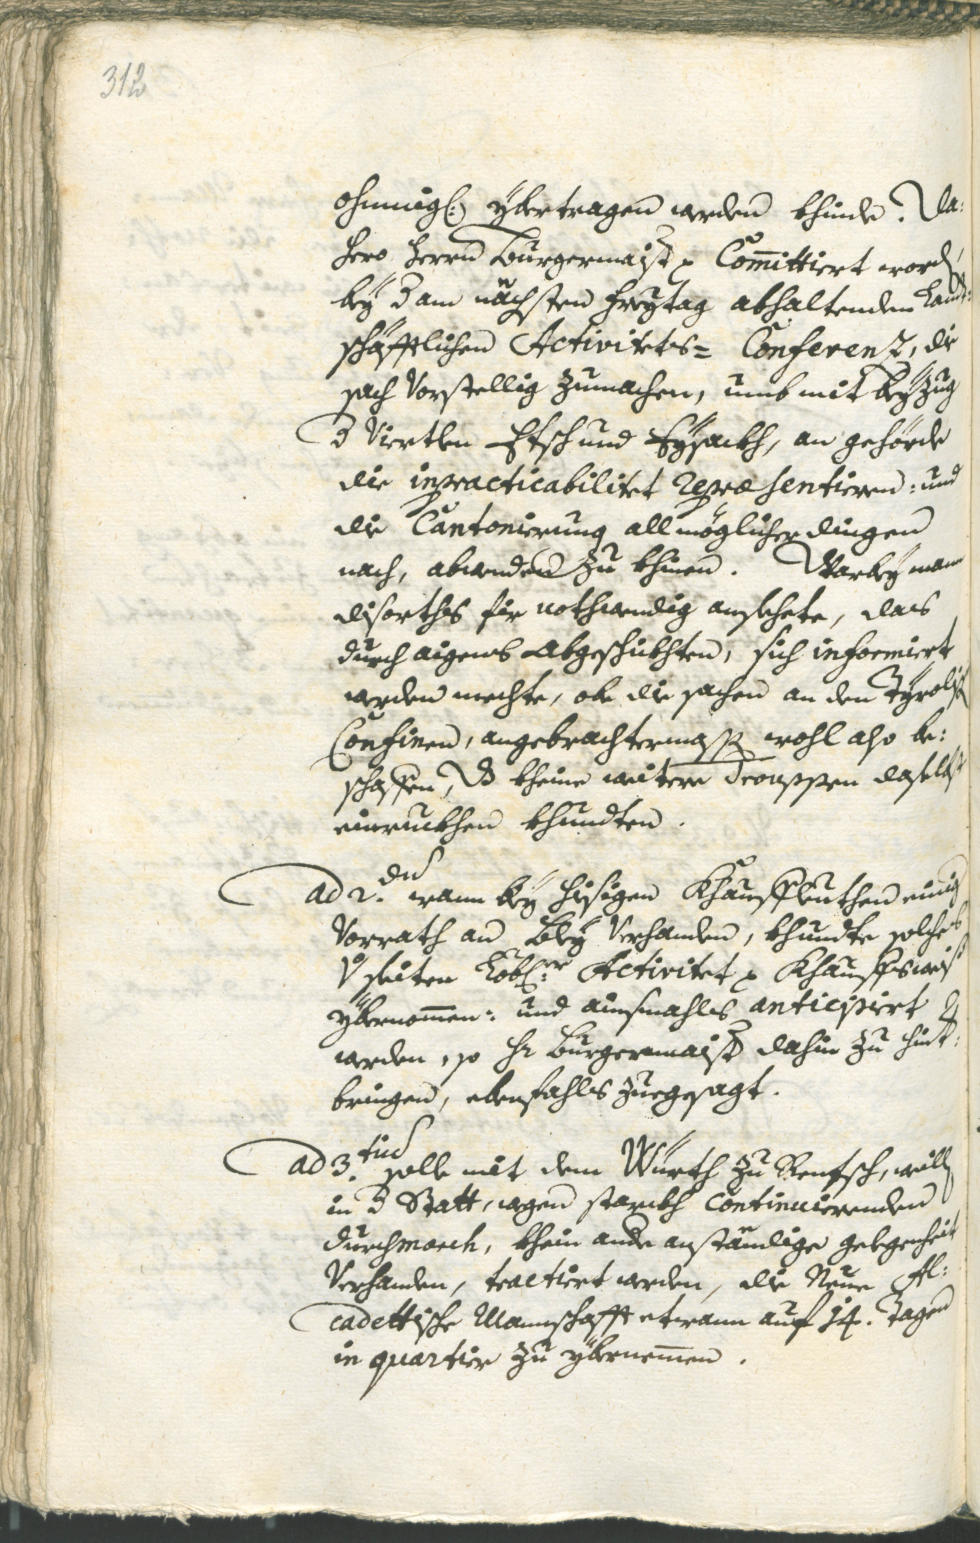 312
ohnmügl: ybertragen werden khinde. Da:
hero Herrn Burgermaist: Committiert word,
bey d am nächsten Freytag abhaltenden Landt:
schäfftlichen Activitets= Conferenz, die
sach Vorstellig zumachen, umb mit beyzug
d Viertlen Etsch und Eysackh, an gehörde
die inpracticabilitet repræsentieren: und
die Cantonierung allmöglicher dingen
nach, abwenden zu khinen. Warbey man
diserths für nothwendig ansechete, das
durch aigens Abgeschickhten, sich informiert
werden mechte, ob die sachen an den Tyrolisch
Confinen, angebrachtermassen wohl also be:
schaffen, dß kheine weitere Trouppen daselbst
einruckhen khundten.
ad 2.dum wann bey hisigen Khauffleuthen einig
Vorrath an Bley Verhanden, khundte solches
V seiten Löbl:er Activitet Khauffsweiß
ybernomen: und ainsmahls anticipiert
werden, so Hr Burgermaist dahin zu hint:
bringen, ebenfahls zuegesagt.
ad 3.tium solle mit dem Würth zu Rentsch, weill
in d Statt, wegen starckh continuierenden
durchmarch, khein ande anständige gelegenheit
Verhanden, tractiert werden, die Neue Al:
cadettische Mannschafft etwann auf 14. Tagen
in quartier zu ybernemen.